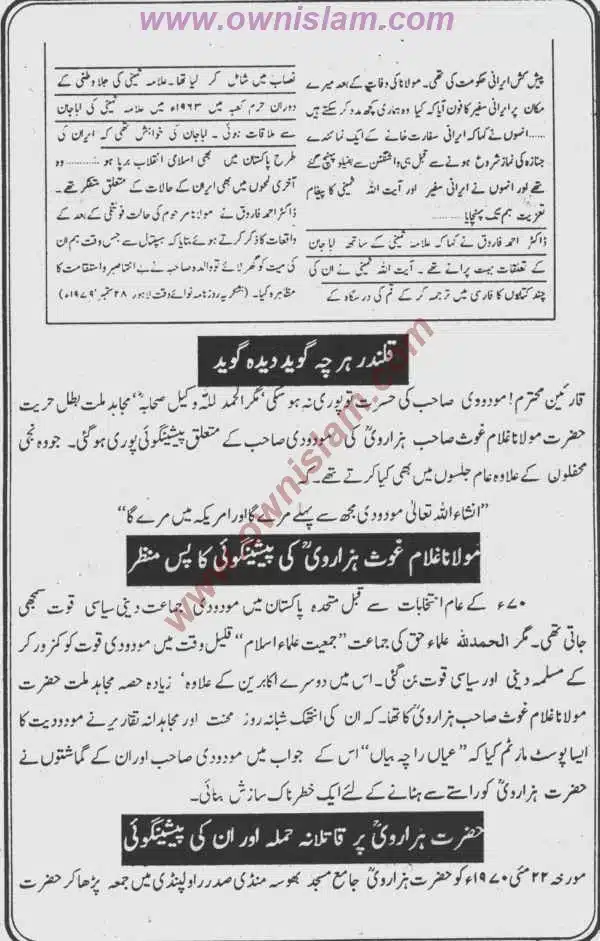 www.ownislam.com
پیش کش ایرانی حکومت کی تھی۔ مولانا کی وفات کے بعد میرے
مکان پر ایرانی سفیر کا فون آیا کہ کیا وہ ہماری کچھ مدد کر سکتے ہیں
......انھوں نے کہا کہ ایرانی سفارت خانے کے ایک نمائندے
جنازہ کی نماز شروع ہونے سے قبل ہی واشنگٹن سے بفیلو پہنچ گئے
تھے اور انھوں نے ایرانی سفیر اور آیت اللہ خمینی کا پیغام
تعزیت ہم تک پہنچایا
ڈاکٹر احمد فاروق نے کہا کہ علامہ خمینی کے ساتھ اباجان
کے تعلقات بہت پرانے تھے۔ آیت اللہ خمینی نے ان کی
چند کتابوں کا فارسی میں ترجمہ کر کے قم کی درسگاہ کے
نصاب میں شامل کر لیا تھا۔ علامہ خمینی کی جلاوطنی کے
دوران حرم کعبہ میں ۱۹۶۳ء میں علامہ خمینی کی اباجان
سے ملاقات ہوئی۔ اباجان کی خواہش تھی کہ ایران کی
طرح پاکستان میں بھی اسلامی انقلاب برپا ہو ......... وہ
آخری لمحوں میں بھی ایران کے حالات کے متعلق متفکر تھے۔
ڈاکٹر احمد فاروق نے مولانا مرحوم کی حالت فوتگی کے بعد کے
واقعات کا ذکر کرتے ہوئے بتایا کہ ہسپتال سے جس وقت ہم ان
کی میت کو گھر لائے تو والدہ صاحبہ نے بے انتہا صبر و استقامت کا
مظاہرہ کیا۔ (بشکریہ روزنامہ نوائے وقت لاہور ۲۸ ستمبر ۱۹۷۹ء)
قلندر ہر چہ گوید دیدہ گوید
قارئین محترم! مودودی صاحب کی حسرت تو پوری نہ ہو سکی‘ مگر الحمد للہ وکیل صحابہؓ‘ مجاہد ملت بطل حریت
حضرت مولانا غلام غوث صاحب ہزارویؒ کی مودودی صاحب کے متعلق پیشینگوئی پوری ہو گئی۔ جو وہ نجی
محفلوں کے علاوہ عام جلسوں میں بھی کیا کرتے تھے۔ کہ
"انشاء اللہ تعالیٰ مودودی مجھ سے پہلے مرے گا اور امریکہ میں مرے گا"
مولانا غلام غوث ہزارویؒ کی پیشینگوئی کا پس منظر
۷۰ء کے عام انتخابات سے قبل متحدہ پاکستان میں مودودی جماعت دینی سیاسی قوت سمجھی
جاتی تھی۔ مگر الحمدللہ علماء حق کی جماعت "جمعیت علماء اسلام" قلیل وقت میں مودودی قوت کو کمزور کر
کے مسلمہ دینی اور سیاسی قوت بن گئی۔ اس میں دوسرے اکابرین کے علاوہ‘ زیادہ حصہ مجاہد ملت حضرت
مولانا غلام غوث صاحب ہزارویؒ کا تھا۔ کہ ان کی انتھک شبانہ روز محنت اور مجاہدانہ تقاریر نے مودودیت کا
ایسا پوسٹ مارٹم کیا کہ "عیاں را چہ بیاں" اس کے جواب میں مودودی صاحب اور ان کے گماشتوں نے
حضرت ہزارویؒ کو راستے سے ہٹانے کے لئے ایک خطرناک سازش بنائی۔
حضرت ہزارویؒ پر قاتلانہ حملہ اور ان کی پیشینگوئی
مورخہ ۲۲ مئی ۱۹۷۰ء کو حضرت ہزارویؒ جامع مسجد بھوسہ منڈی صدر راولپنڈی میں جمعہ پڑھا کر حضرت
www.ownislam.com